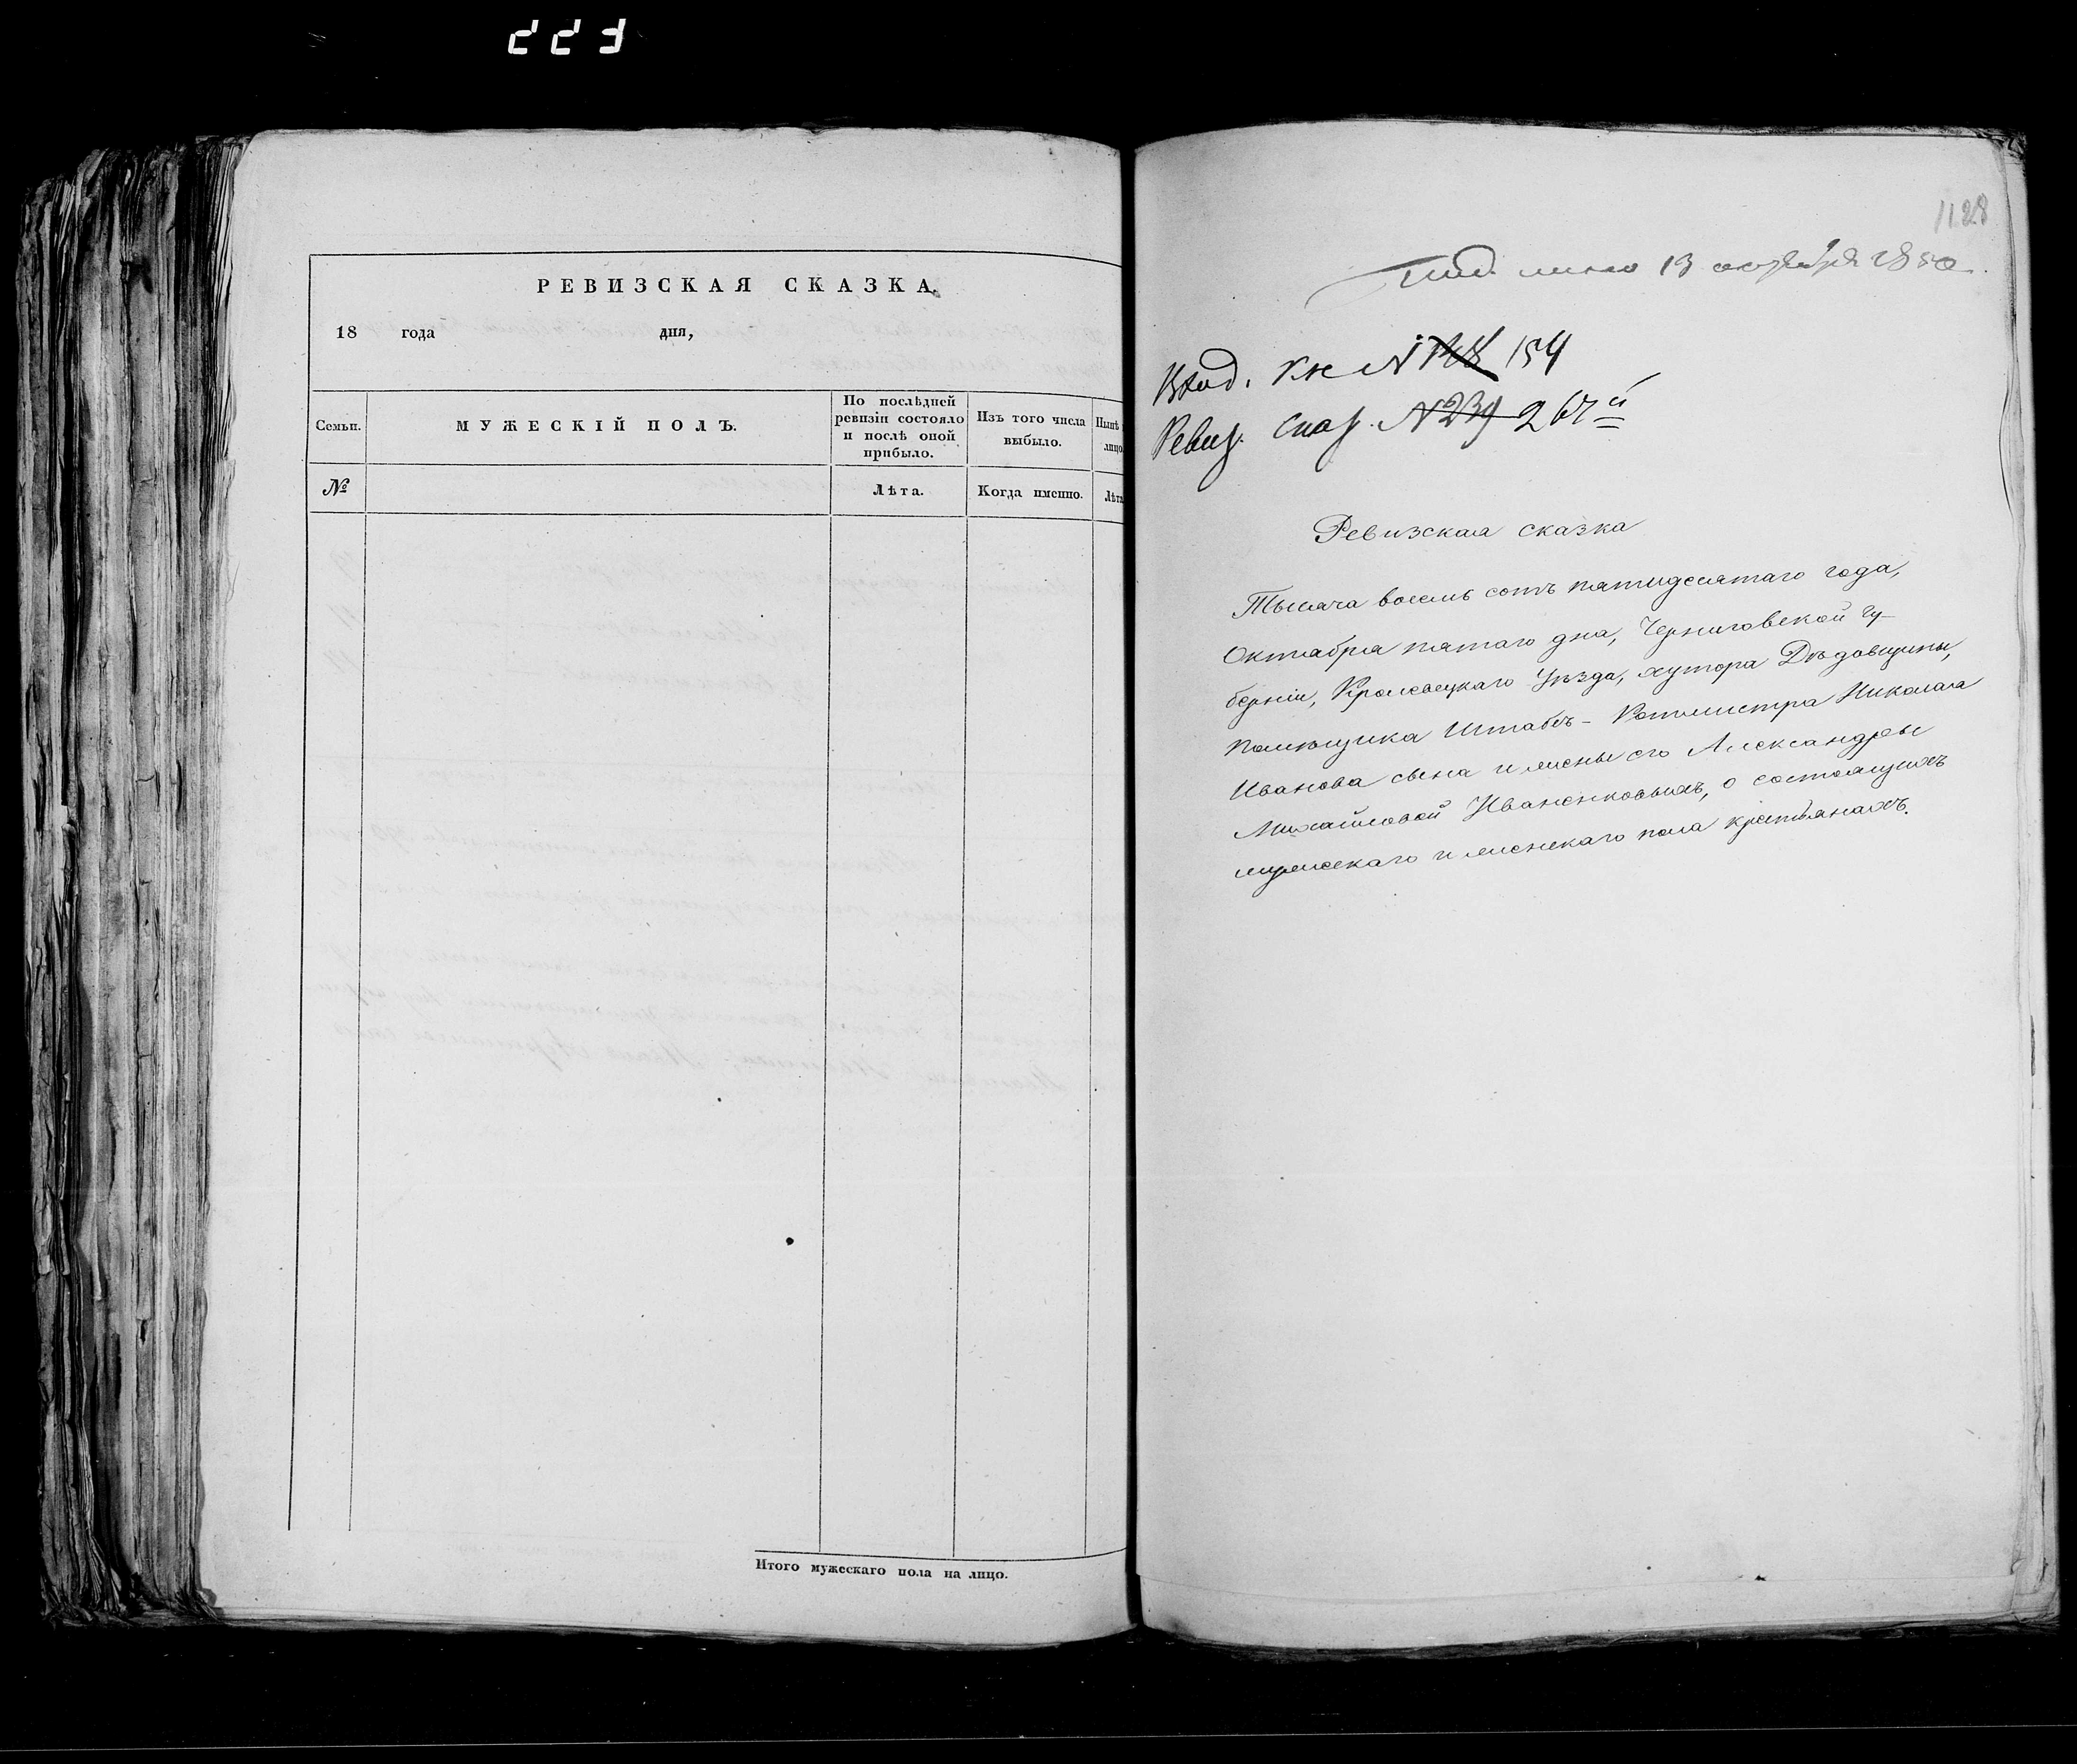 223
РЕВИЗСКАЯ СКАЗКА.
18 года дня,
Семьи.
МУЖЕСКІЙ ПОЛЪ.
По послѣдней
ревизіи состояло
и послѣ оной
прибыло.
Изъ того числа
выбыло.
Нынѣ
лицо
№
Лѣта.
Когда именно.
Лѣта
Итого мужескаго пола на лицо.
1128
13 октября 1850
Вход. Кн № 154
Ревиз. Сказ. № 239 267й
Ревизская сказка
Тысяча восемь сотъ пятидесятаго года,
Октября пятаго дня, Черниговской Гу-
берніи, Кролевецкаго Уѣзда, хутора Дѣдовщины,
помѣщика Штабъ-Ротмистра Николая
Иванова сына и жены его Александры
Михайловой Иваненковыхъ, о состоящихъ
мужескаго и женскаго пола крестьянахъ.